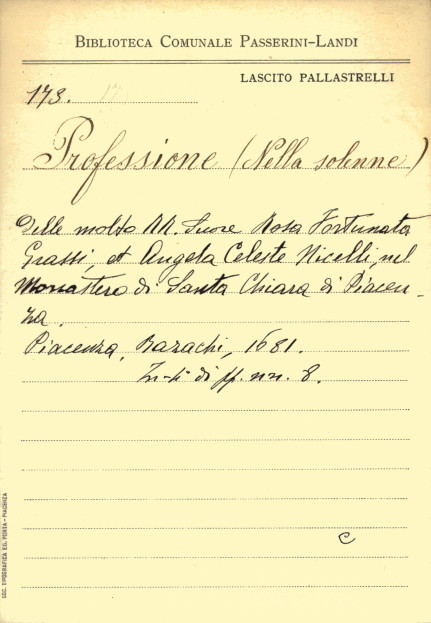 BIBLIOTECA COMUNALE PASSERINI-LANDI
LASCITO PALLASTRELLI
173.
Professione (Nella solenne)
delle molto RR. Suore Rosa Fortunata
Grassi, et Angela Celeste Nicelli, nel
Monastero di Santa Chiara di Piacen-
za.
Piacenza, Bazachi, 1681.
In-4° di pp. nn. 8.
C
SOC. TIPOGRAFICA ED. PORTA - PIACENZA